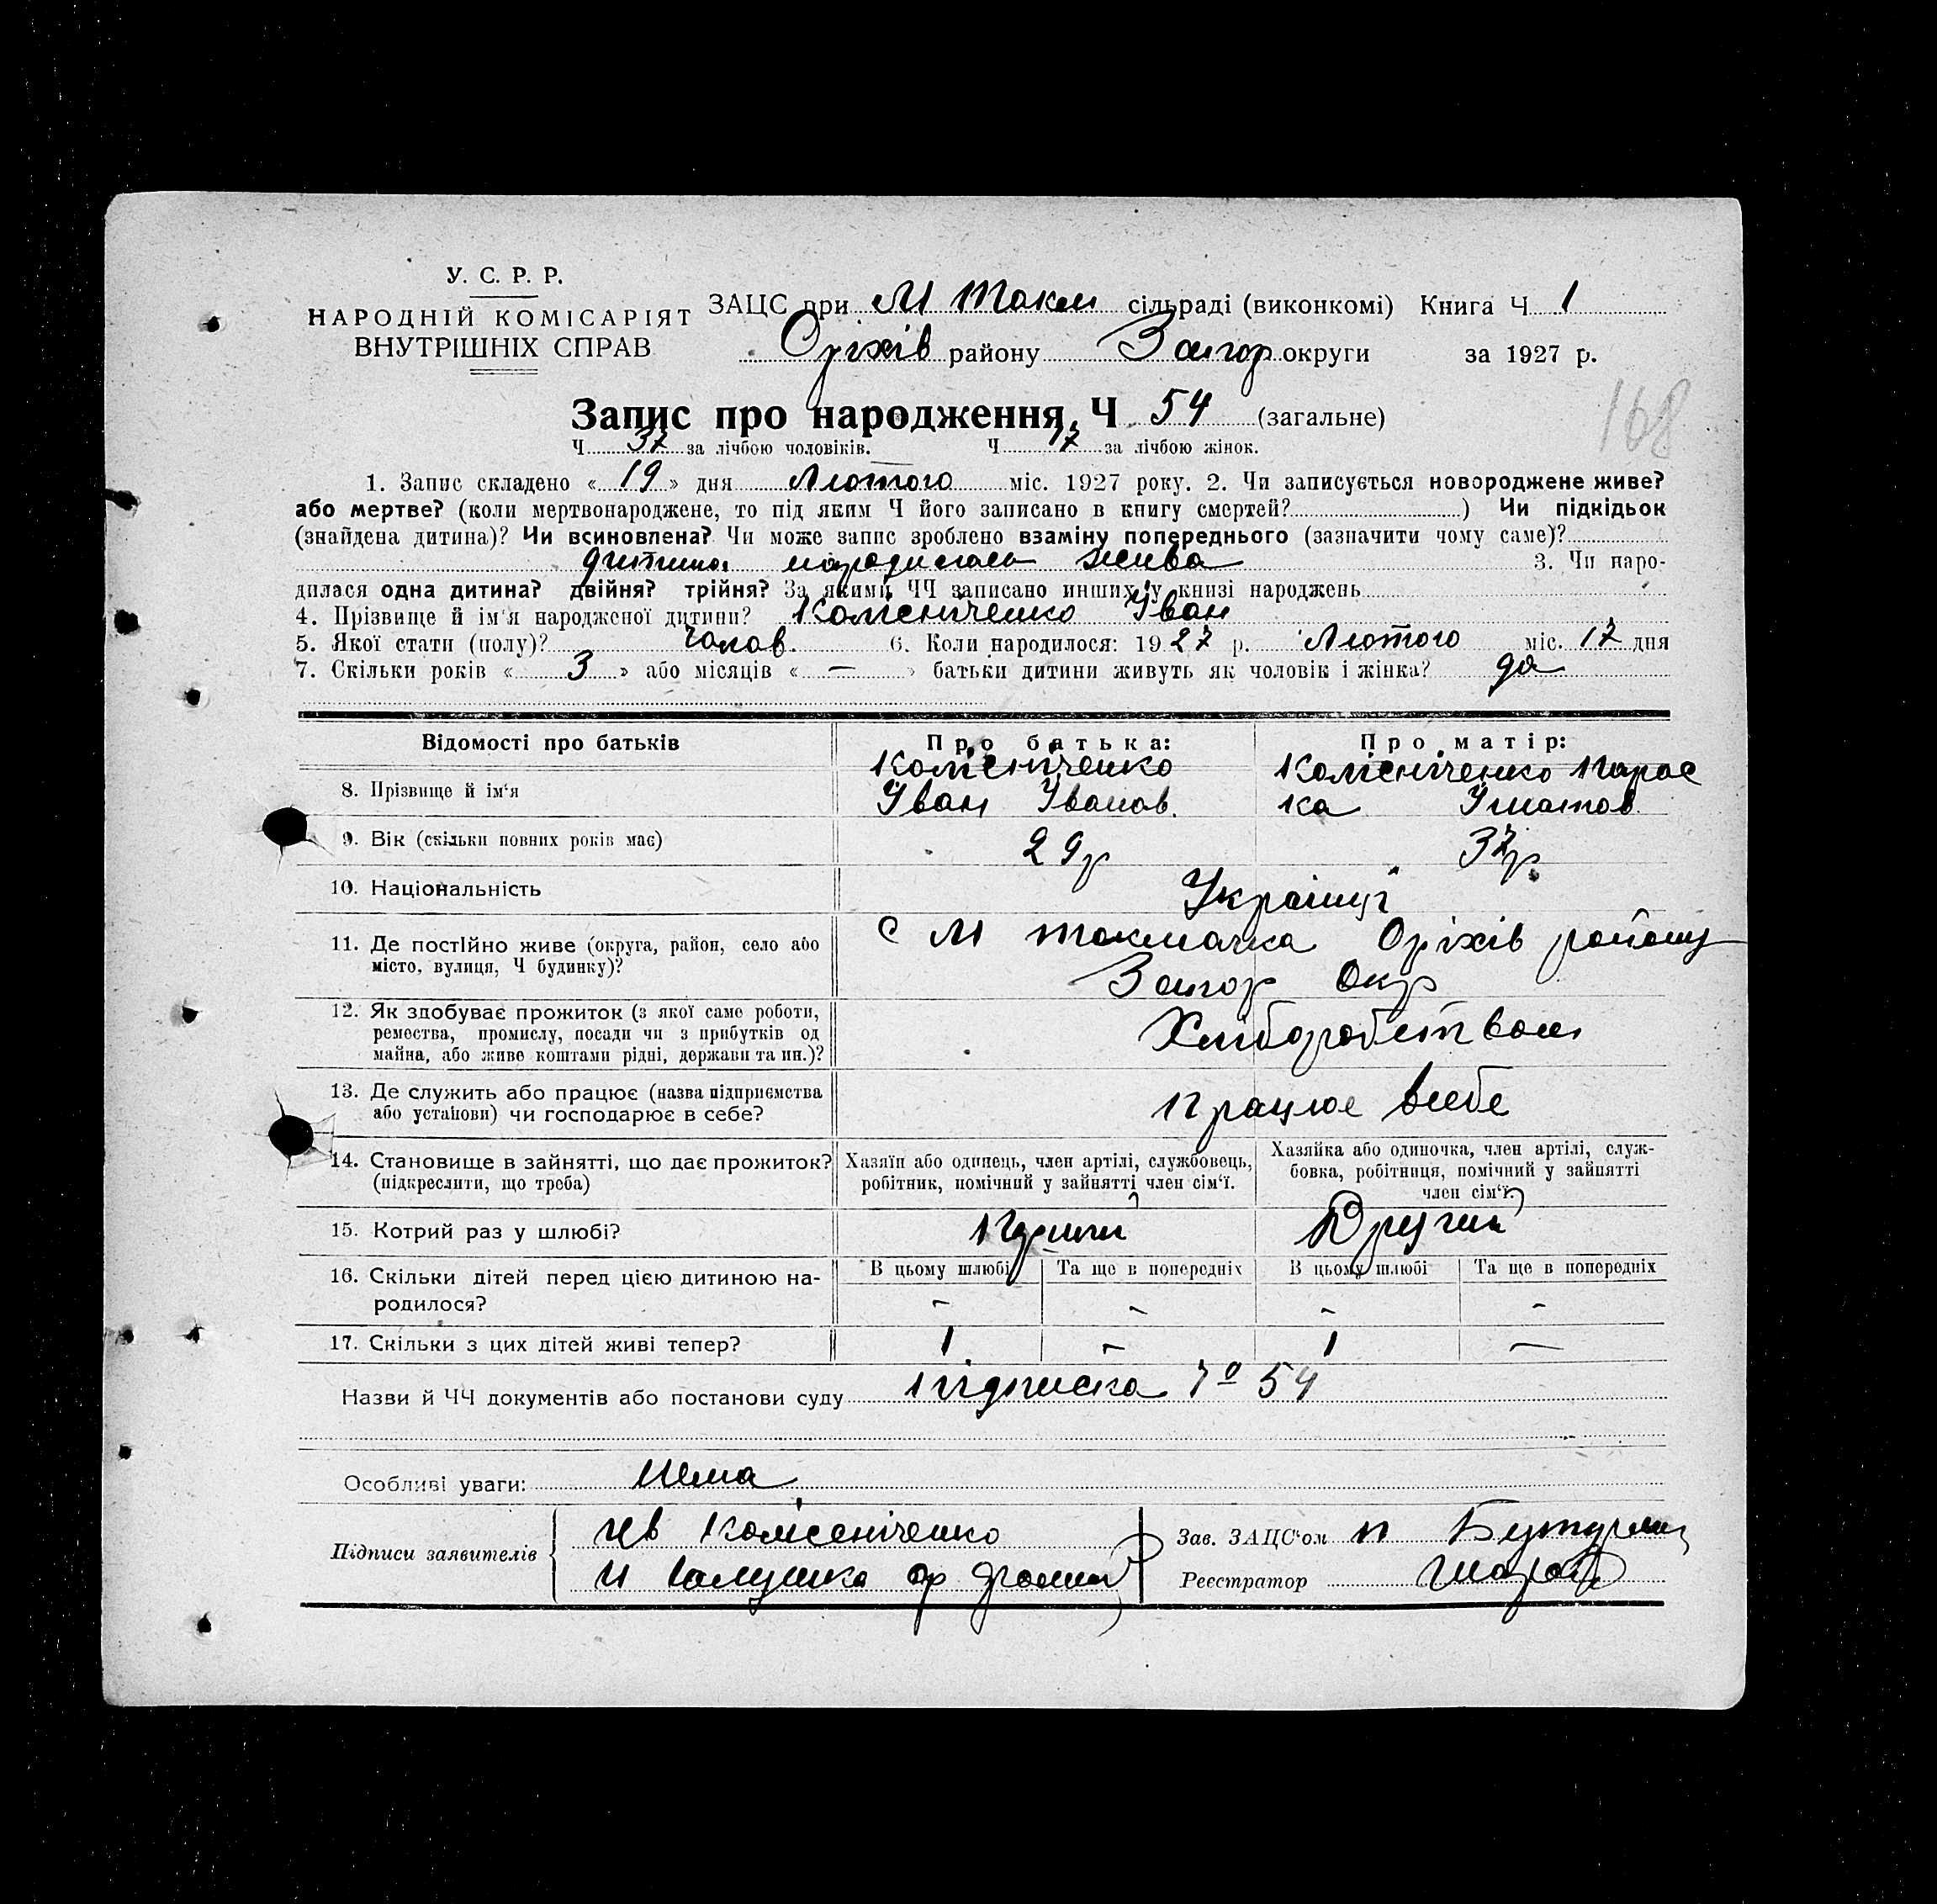 У. С. Р. Р.
НАРОДНІЙ КОМІСАРІЯТ
ВНУТРІШНІХ СПРАВ
ЗАЦС при М Токм сільраді (виконкомі) Книга Ч 1
Оріхів району Запор округи за 1927 р.
168
Запис про народження, Ч 54 (загальне)
Ч 37 за лічбою чоловіків. Ч 17 за лічбою жінок.
1. Запис складено « 19 » дня Лютого міс. 1927 року. 2. Чи записується новороджене живе?
або мертве? (коли мертвонароджене, то під яким Ч його записано в книгу смертей? ) Чи підкідьок
(знайдена дитина)? Чи всиновлена? Чи може запис зроблено взаміну попереднього (зазначити чому саме)?
дитина народилась жива 3. Чи наро-
дилася одна дитина? двійня? трійня? За якими ЧЧ записано инших у книзі народжень
4. Прізвище й ім'я народженої дитини? Колісніченко Іван
5. Якої стати (полу)? Чолов. 6. Коли народилося: 1927 р. Лютого міс. 17 дня
7. Скільки років « 3 » або місяців « — » батьки дитини живуть як чоловік і жінка? да
Відомості про батьків Про батька: Про матір:
8. Прізвище й ім'я Колісніченко Іван Іванов. Колісніченко Парас ка Ігнатов.
9. Вік (скільки повних років має) 29 р 37 р.
10. Національність Українці
11. Де постійно живе (округа, район, село або С М токмачка Оріхів району
місто, вулиця, Ч будинку)? Запор Окр
12. Як здобуває прожиток (з якої саме роботи,
ремества, промислу, посади чи з прибутків од Хліборобством
майна, або живе коштами рідні, держави та ин.)?
13. Де служить або працює (назва підприємства
або установи) чи господарює в себе? Працює всебе
14. Становище в зайнятті, що дає прожиток? Хазяїн або одинець, член артілі, службовець, Хазяйка або одиночка, член артілі, служ-
(підкреслити, що треба) робітник, помічний у зайнятті член сім'ї. бовка, робітниця, помічний у зайнятті
член сім'ї.
15. Котрий раз у шлюбі? Другий
16. Скільки дітей перед цією дитиною на- В цьому шлюбі Та ще в попередніх В цьому шлюбі Та ще в попередніх
родилося? - - - -
17. Скільки з цих дітей живі тепер? 1 — 1 —
Назви й ЧЧ документів або постанови суду Підписка 54
Особливі уваги: Нема
Підписи заявителів Колісніченко
Зав. ЗАЦС'ом
Реєстратор